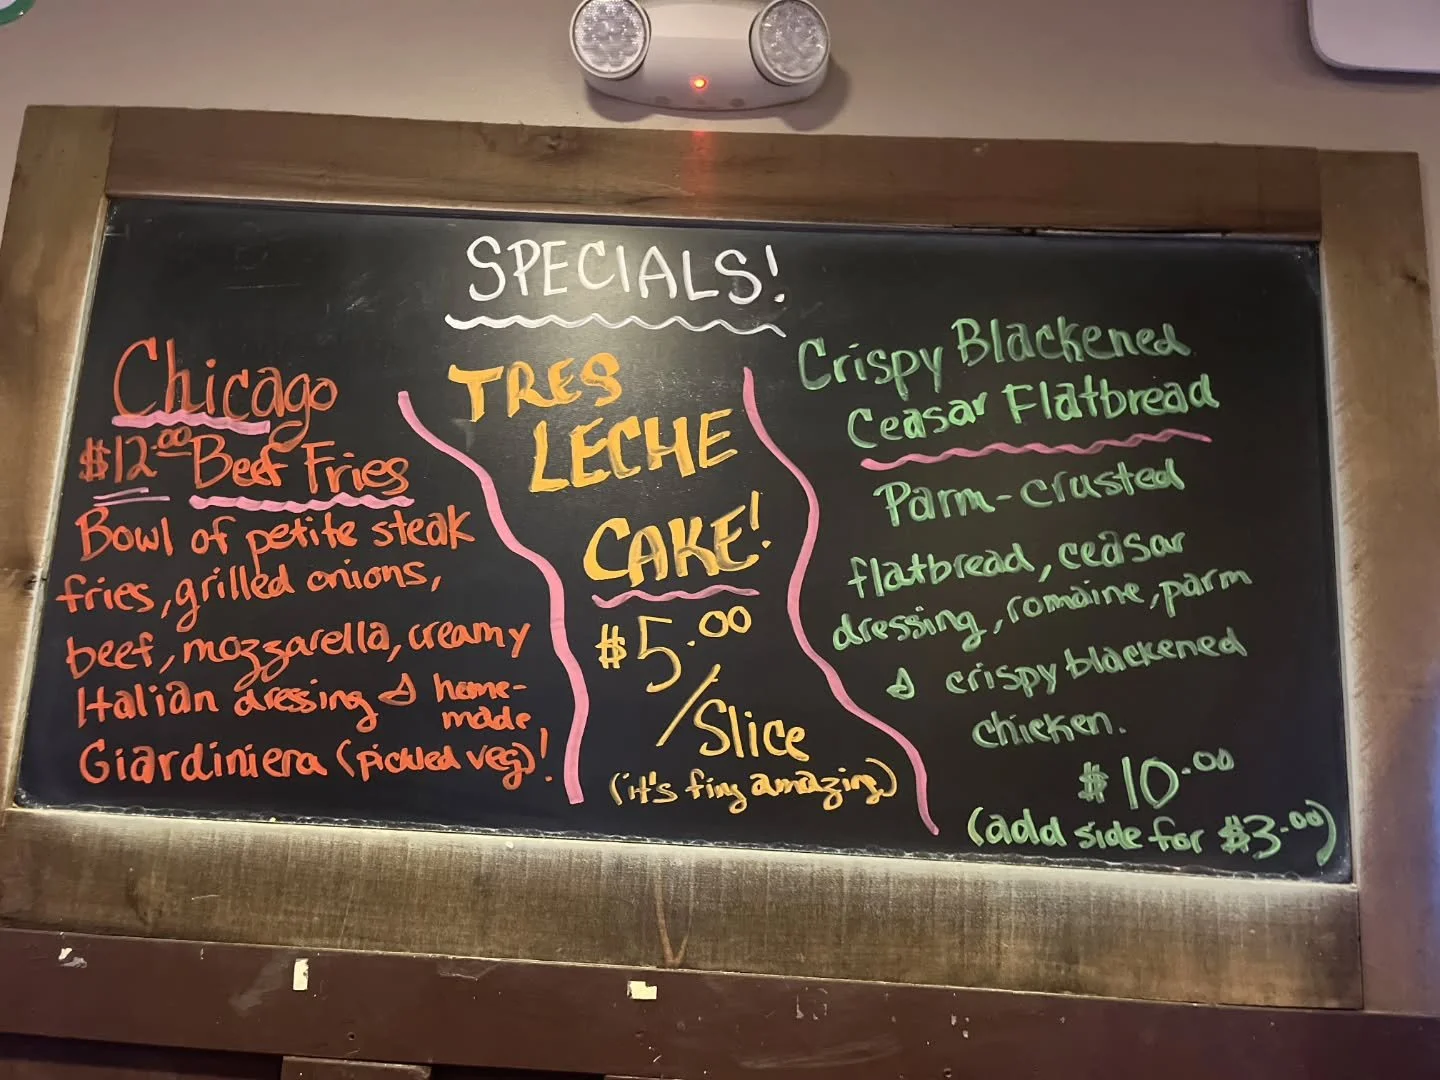 SPECIALS!
Chicago
$12.00 Beef Fries
Bowl of petite steak
fries, grilled onions,
beef, mozzarella, creamy
Italian dressing & home-
made
Giardiniera (pickled veg)!
TRES
LECHE
CAKE!
$5.00
/Slice
(it's fing amazing)
Crispy Blackened
Ceasar Flatbread
Parm-crusted
flatbread, ceasar
dressing, romaine, parm
& crispy blackened
chicken.
$10.00
(add side for $3.00)